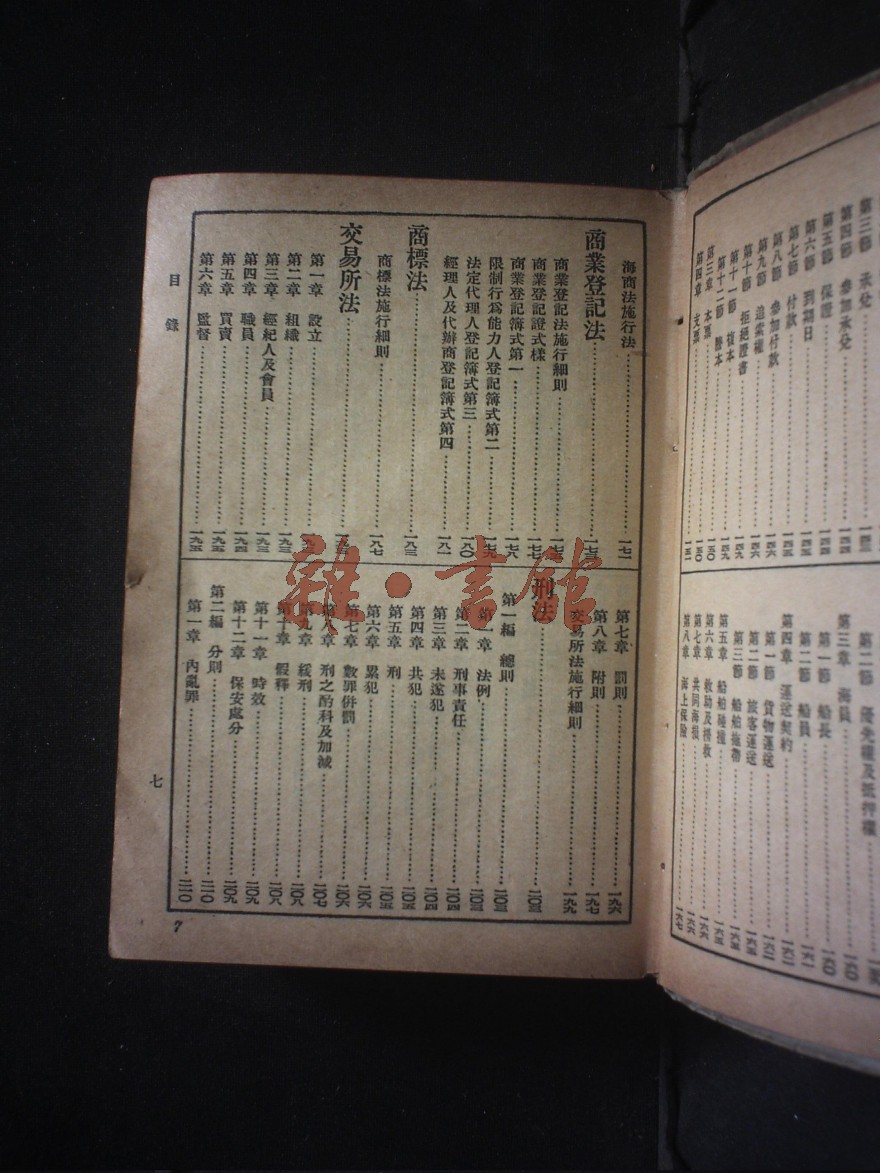 第三節　承兌
第四節　參加承兌……一四四
第五節　保證……一四四
第六節　到期日……一四五
第七節　付款……一四五
第八節　參加付款……一四六
第九節　追索權……一四六
第十節　拒絕證書……一四九
第十一節　複本……一四九
第十二節　謄本……一五〇
第三章　本票……一五〇
第四章　支票……一五一
第二節　優先權及抵押權
第三章　海員……一六〇
第一節　船長……一六〇
第二節　船員……一六一
第四章　運送契約
第一節　貨物運送
第二節　旅客運送……一六五
第三節　船舶拖帶……一六五
第五章　船舶碰撞
第六章　救助及撈救……一六六
第七章　共同海損……一六六
第八章　海上保險……一六七
海商法施行法……一七一
商業登記法
商業登記法施行細則
商業登記證式樣……一七七
商業登記簿式第一……一七八
限制行爲能力人登記簿式第二……一七九
法定代理人登記簿式第三……一八〇
經理人及代辦商登記簿式第四……一八一
商標法……一八三
商標法施行細則……一八七
交易所法
第一章　設立
第二章　組織……一九三
第三章　經紀人及會員……一九三
第四章　職員……一九四
第五章　買賣……一九五
第六章　監督……一九五
第七章　罰則……一九六
第八章　附則……一九七
交易所法施行細則……一九九
刑法……二〇三
第一編　總則……二〇三
第一章　法例……二〇三
第二章　刑事責任……二〇四
第三章　未遂犯……二〇四
第四章　共犯……二〇五
第五章　刑……二〇五
第六章　累犯……二〇六
第七章　數罪併罰……二〇六
第八章　刑之酌科及加減……二〇七
第九章　緩刑……二〇八
第十章　假釋……二〇八
第十一章　時效……二〇九
第十二章　保安處分……二〇九
第二編　分則……二一〇
第一章　內亂罪……二一〇
目錄
七
7
雜·書館